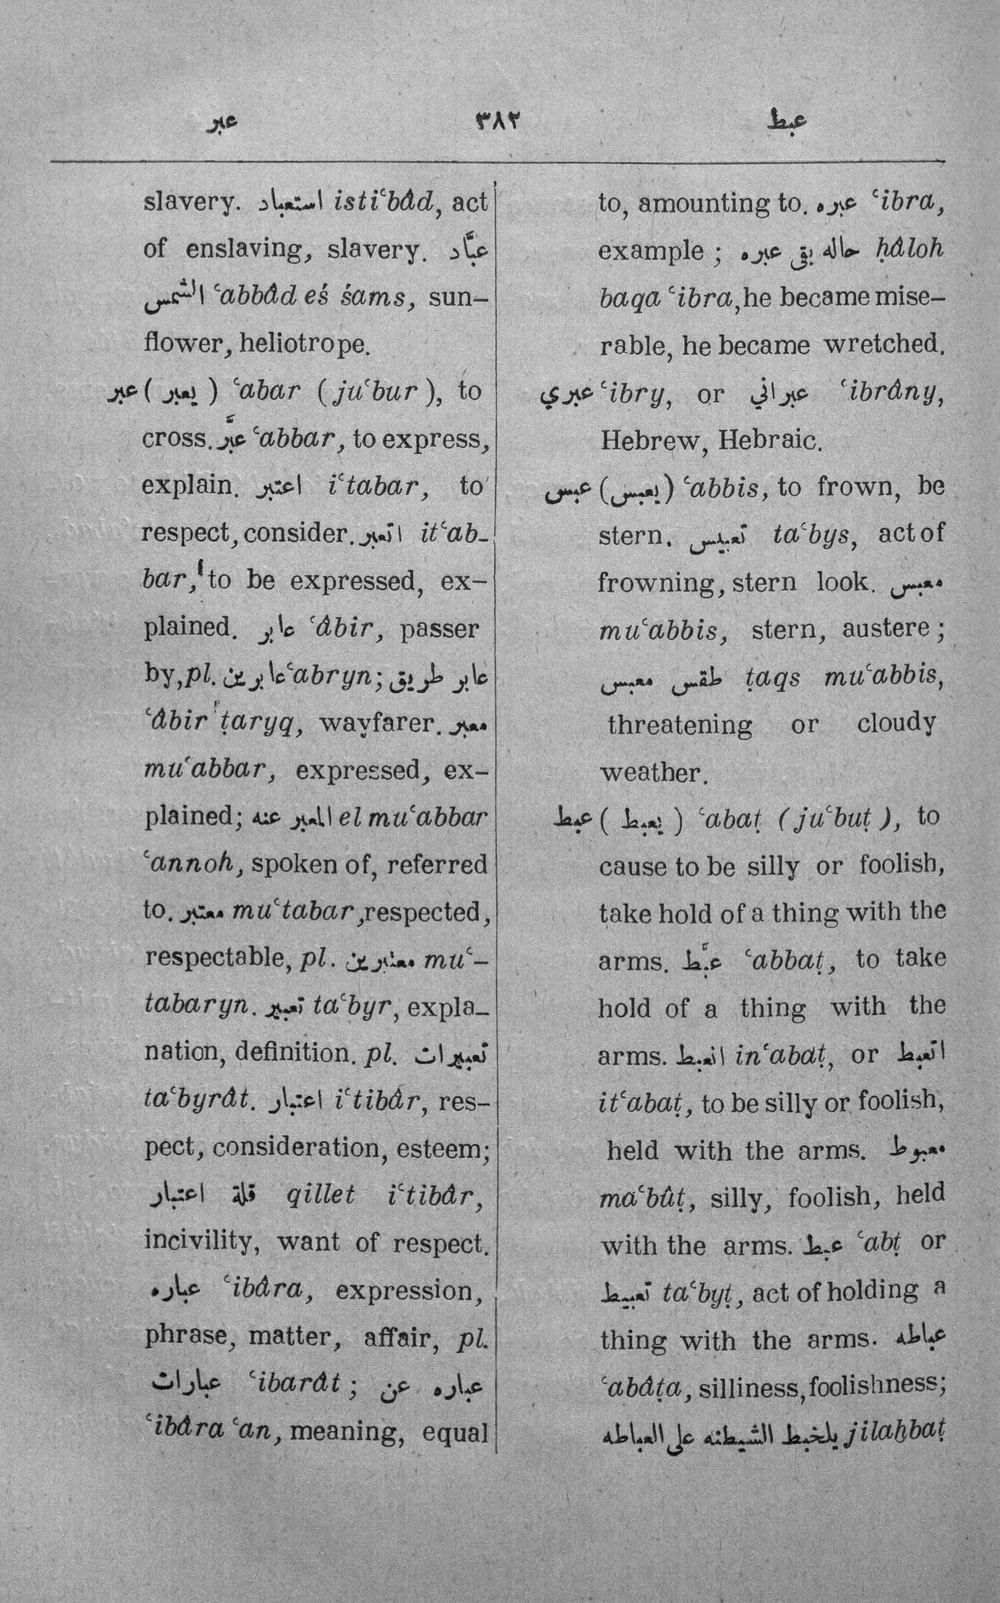 عبر ٣٨٢ عبط
slavery. استعباد istiʿbâd, act
of enslaving, slavery. عبَّاد
الشمس ʿabbâd eś śams, sun–
flower, heliotrope.
عبر (يعبر) ʿabar (juʿbur), to
cross. عبَّر ʿabbar, to express,
explain. اعتبر iʿtabar, to
respect, consider. اتعبر itʿab-
bar, to be expressed, ex–
plained. عابر ʿâbir, passer
by, pl. عابرين ʿabryn; عابر طريق
ʿâbir ṭaryq, wayfarer. معبر
muʿabbar, expressed, ex–
plained; المعبر عنه el muʿabbar
ʿannoh, spoken of, referred
to. معتبر muʿtabar, respected,
respectable, pl. معتبرين muʿ–
tabaryn. تعبير taʿbyr, expla-
nation, definition. pl. تعبيرات
taʿbyrât. اعتبار iʿtibâr, res–
pect, consideration, esteem;
قلة اعتبار qillet iʿtibâr,
incivility, want of respect.
عباره ʿibâra, expression,
phrase, matter, affair, pl.
عبارات ʿibarât; عباره عن
ʿibâra ʿan, meaning, equal
to, amounting to. عبره ʿibra,
example; حاله بقى عبره ḥâloh
baqa ʿibra, he became mise–
rable, he became wretched.
عبري ʿibry, or عبراني ʿibrâny,
Hebrew, Hebraic.
عبس (يعبس) ʿabbis, to frown, be
stern. تعبيس taʿbys, act of
frowning, stern look. معبس
muʿabbis, stern, austere;
طقس معبس ṭaqs muʿabbis,
threatening or cloudy
weather.
عبط (يعبط) ʿabaṭ (juʿbuṭ), to
cause to be silly or foolish,
take hold of a thing with the
arms. عبَّط ʿabbaṭ, to take
hold of a thing with the
arms. انعبط inʿabaṭ, or اتعبط
itʿabaṭ, to be silly or foolish,
held with the arms. معبوط
maʿbûṭ, silly, foolish, held
with the arms. عبط ʿabṭ or
تعبيط taʿbyṭ, act of holding a
thing with the arms. عباطه
ʿabâṭa, silliness, foolishness;
يلخبط الشيطنه على العباطه jilaḫbaṭ